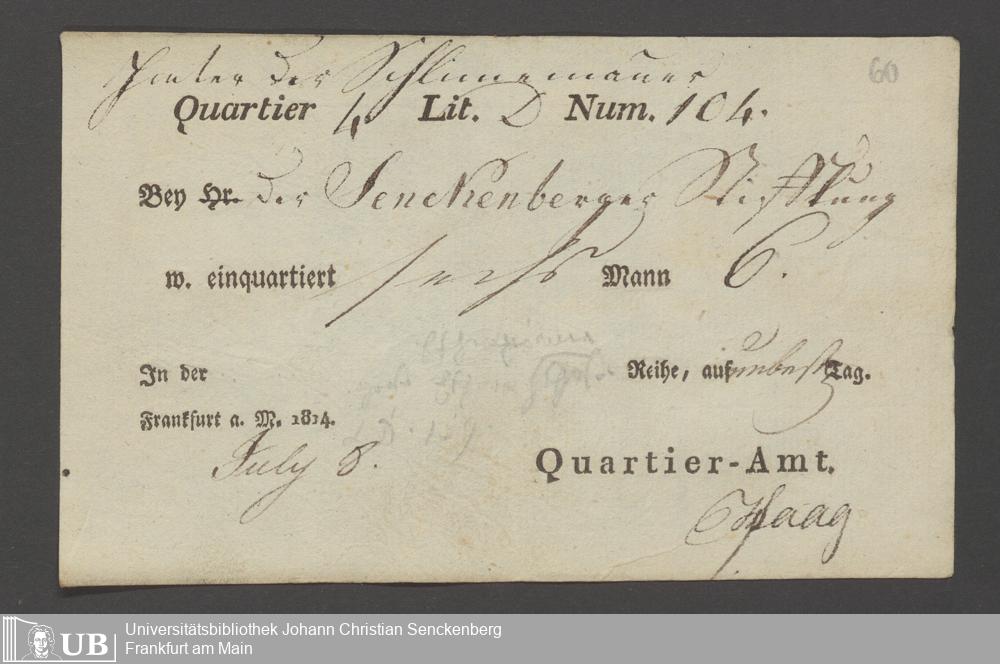 Hinter der Schlimmemauer
60
Quartier 4 Lit. D Num. 104.
Bey Hr. der Senckenberger Stifftung
w. einquartiert sechs Mann 6.
In der Reihe, auf unbest Tag.
Frankfurt a. M. 1814.
July 8.
Quartier-Amt.
Haag
UB
Universitätsbibliothek Johann Christian Senckenberg
Frankfurt am Main